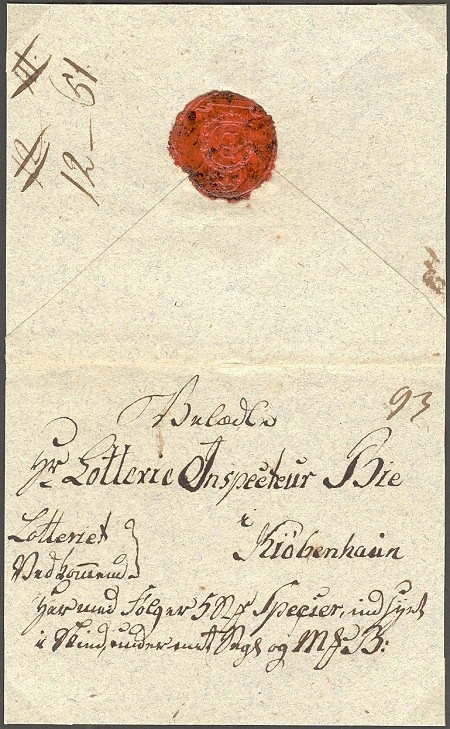 12 — 61.
93
Velædle
Hr Lotterie Inspecteur Bie
i
Kiöbenhavn
Lotteriet
Vedkommend.
Her med Følger 5 Specier, ind Syet
i Skind, under mit Segl og M B: